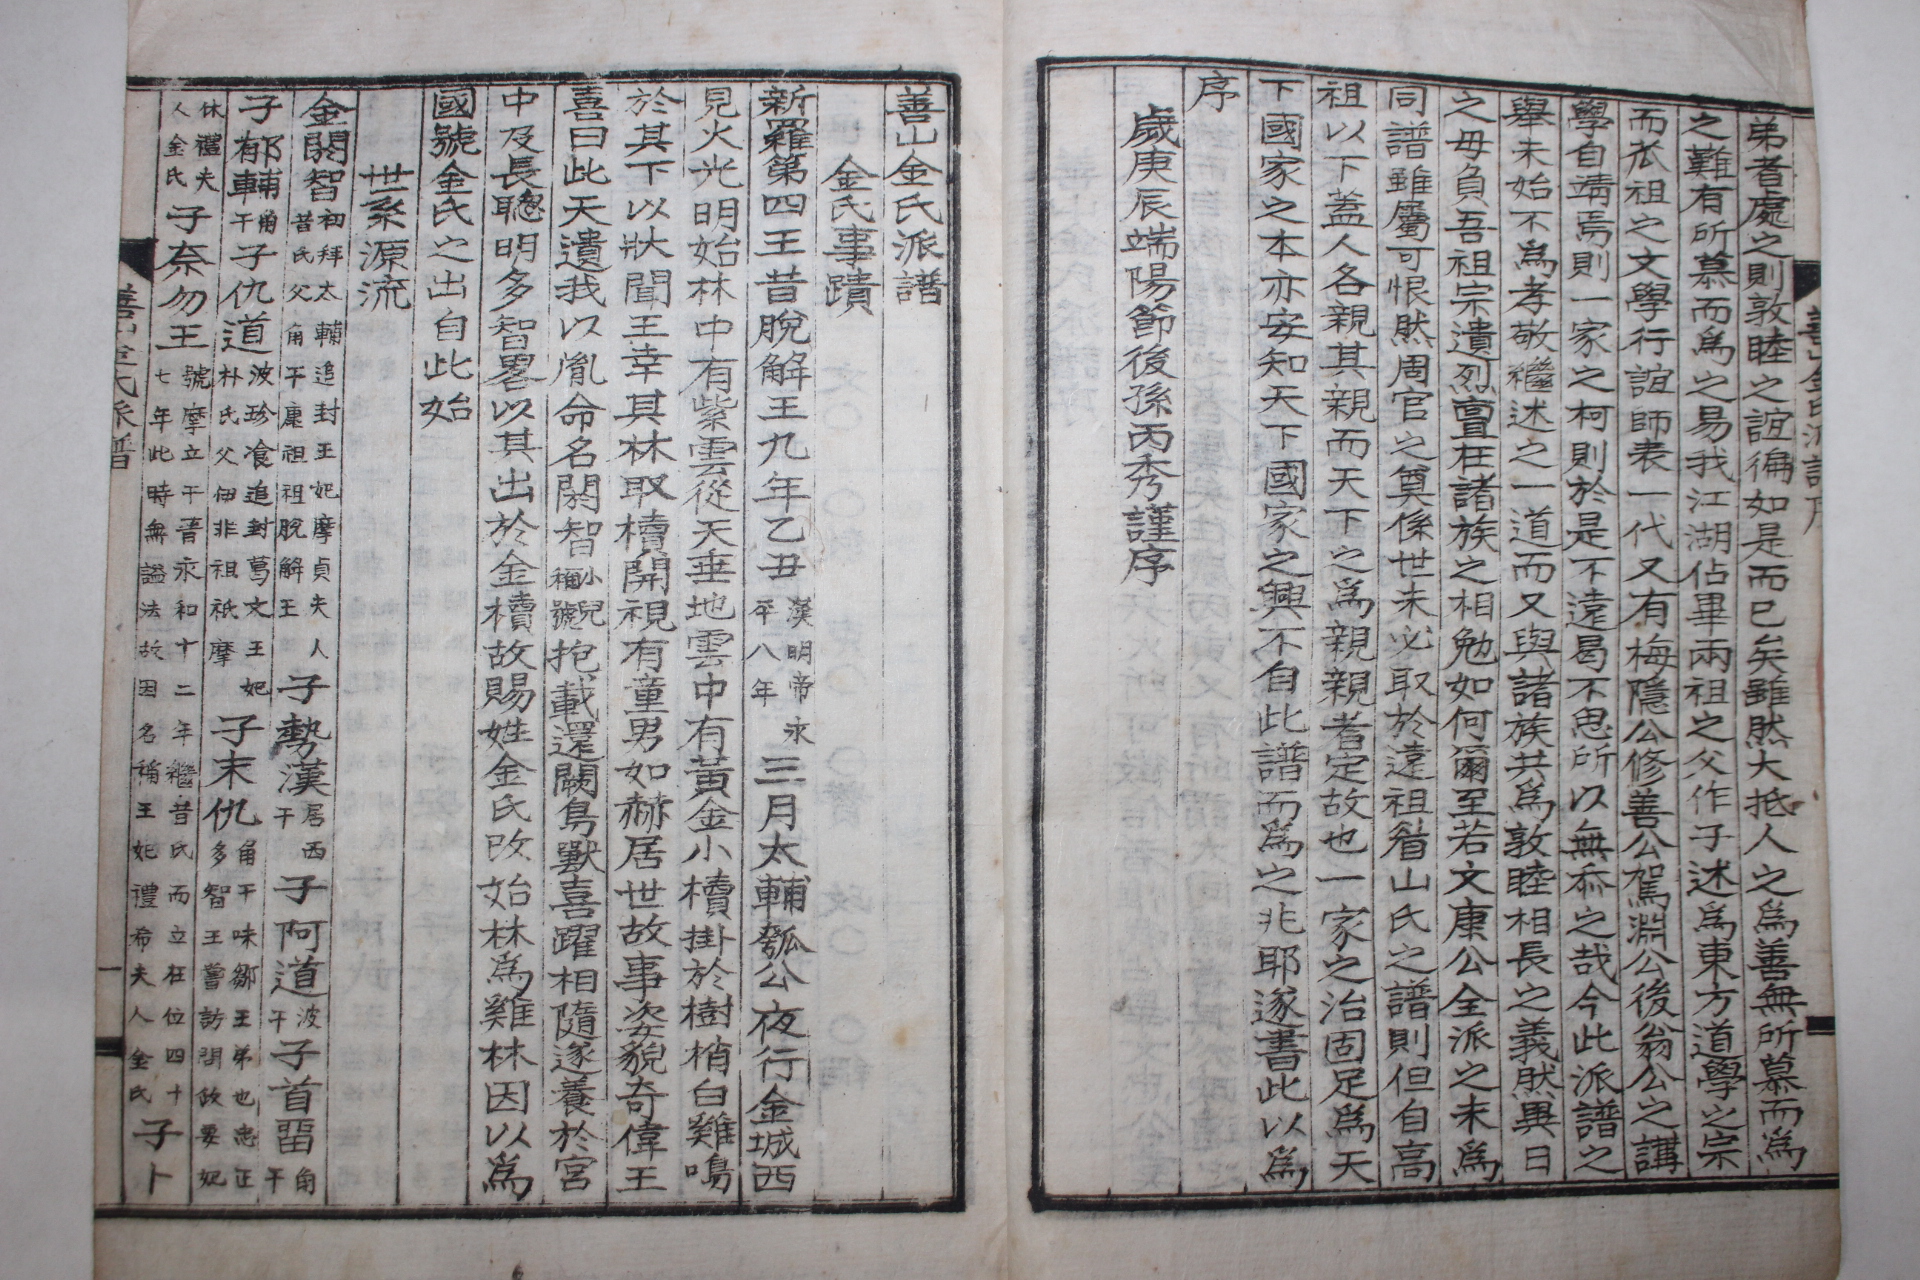 弟者處之則敦睦之誼徧如是而已矣雖然大抵人之爲善無所慕而爲
之難有所慕而爲之易我江湖佔畢兩祖之父作子述爲東方道學之宗
而茋祖之文學行誼師表一代又有梅隱公修善公駕淵公後翁公之講
學自靖焉則一家之柯則於是不遠曷不思所以無忝之哉今此派譜之
舉未始不爲孝敬繼述之一道而又與諸族共爲敦睦相長之義然與日
之毋負吾祖宗遺烈亶在諸族之相勉如何爾至若文康公全派之未爲
同譜雖屬可恨然周官之奠係世未必取於遠祖眉山氏之譜則但自高
祖以下蓋人各親其親而天下之爲親親者定故也一家之治固足爲天
下國家之本亦安知天下國家之興不自此譜而爲之兆耶遂書此以爲
序
歲庚辰端陽節後孫丙秀謹序
善山金氏派譜序
善山金氏派譜
金氏事蹟
新羅第四王昔脫解王九年乙丑漢明帝永平八年三月太輔瓠公夜行金城西
見火光明始林中有紫雲從天垂地雲中有黃金小櫝掛於樹梢白雞鳴
於其下以狀聞王幸其林取櫝開視有童男如赫居世故事姿貌奇偉王
喜曰此天遺我以胤命名閼智小兒稱號抱載還闕鳥獸喜躍相隨遂養於宮
中及長聰明多智畧以其出於金櫝故賜姓金氏改始林爲雞林因以爲
國號金氏之出自此始
世系源流
金閼智初拜太輔追封王妃摩貞夫人昔氏父角干康祖祖脫解王子勢漢居西干子阿道波干子首留角干
子郁輔角干子仇道波珍飡追封葛文王妃朴氏父伊非祖祇摩子末仇角干味鄒王弟也忠正多智王嘗訪問政要妃
休禮夫人金氏子奈勿王號摩立干晋永和十二年繼昔氏而立在位四十七年此時無謚法故因名稱王妃禮希夫人金氏子卜
善山金氏派譜
一